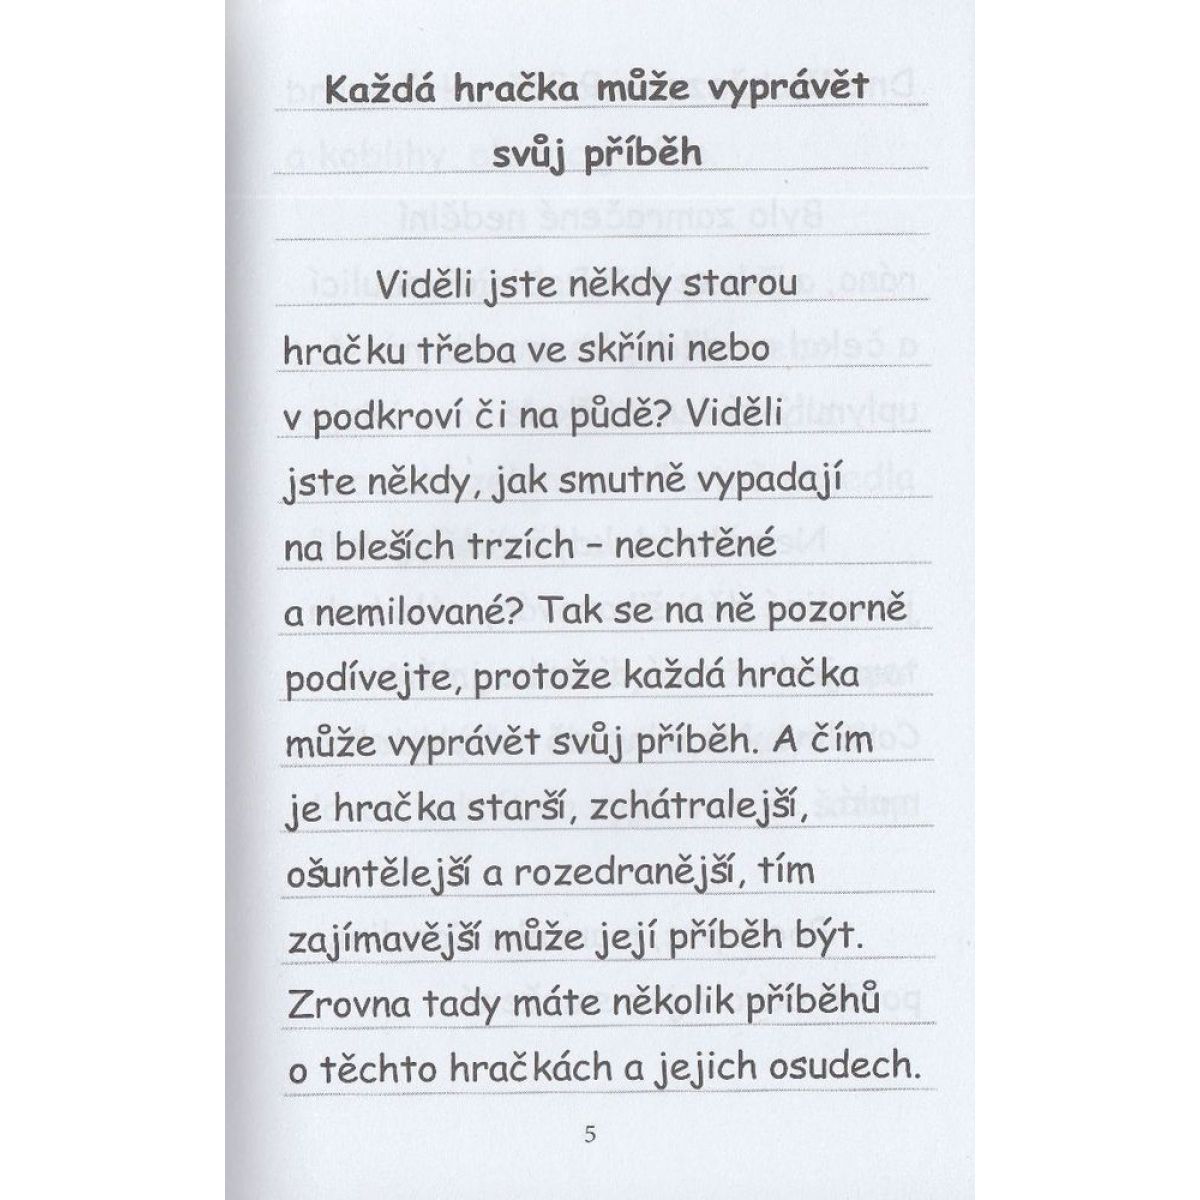 Každá hračka může vyprávět
svůj příběh
Viděli jste někdy starou
hračku třeba ve skříni nebo
v podkroví či na půdě? Viděli
jste někdy, jak smutně vypadají
na bleších trzích – nechtěné
a nemilované? Tak se na ně pozorně
podívejte, protože každá hračka
může vyprávět svůj příběh. A čím
je hračka starší, zchátralejší,
ošuntělejší a rozedranější, tím
zajímavější může její příběh být.
Zrovna tady máte několik příběhů
o těchto hračkách a jejich osudech.
5